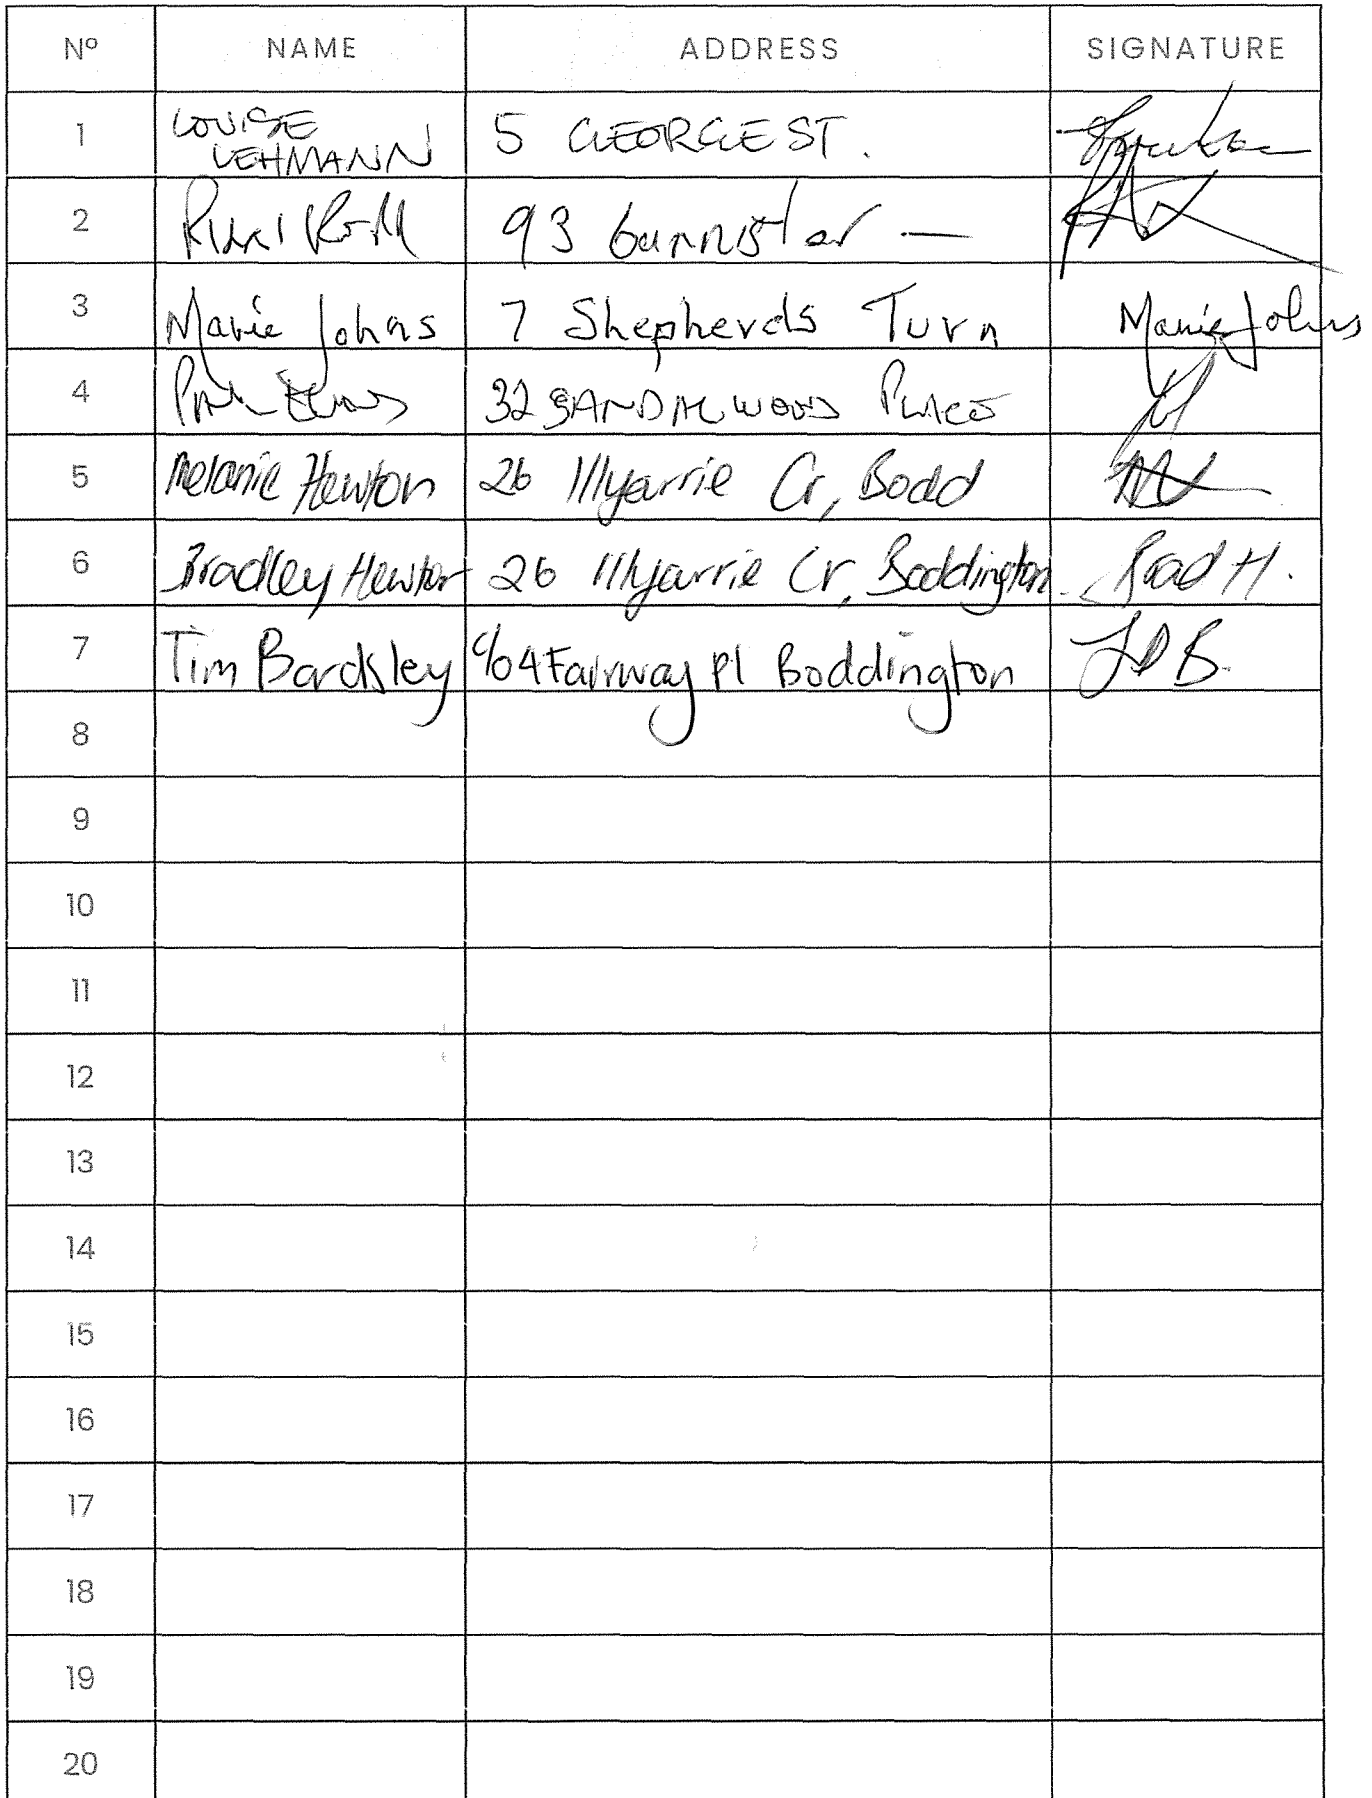 Nº NAME ADDRESS SIGNATURE
1 LOUISE
LEHMANN 5 GEORGE ST.
2 93 Bannister —
3 Marie Johns 7 Shepherds Turn Marie Johns
4 32 SANDALWOOD PLACE
5 Melanie Hewton 26 Illyarrie Cr, Bodd
6 Bradley Hewton 26 Illyarrie Cr, Boddington Brad H.
7 Tim Bardsley c/o 4 Fairway Pl Boddington
8
9
10
11
12
13
14
15
16
17
18
19
20